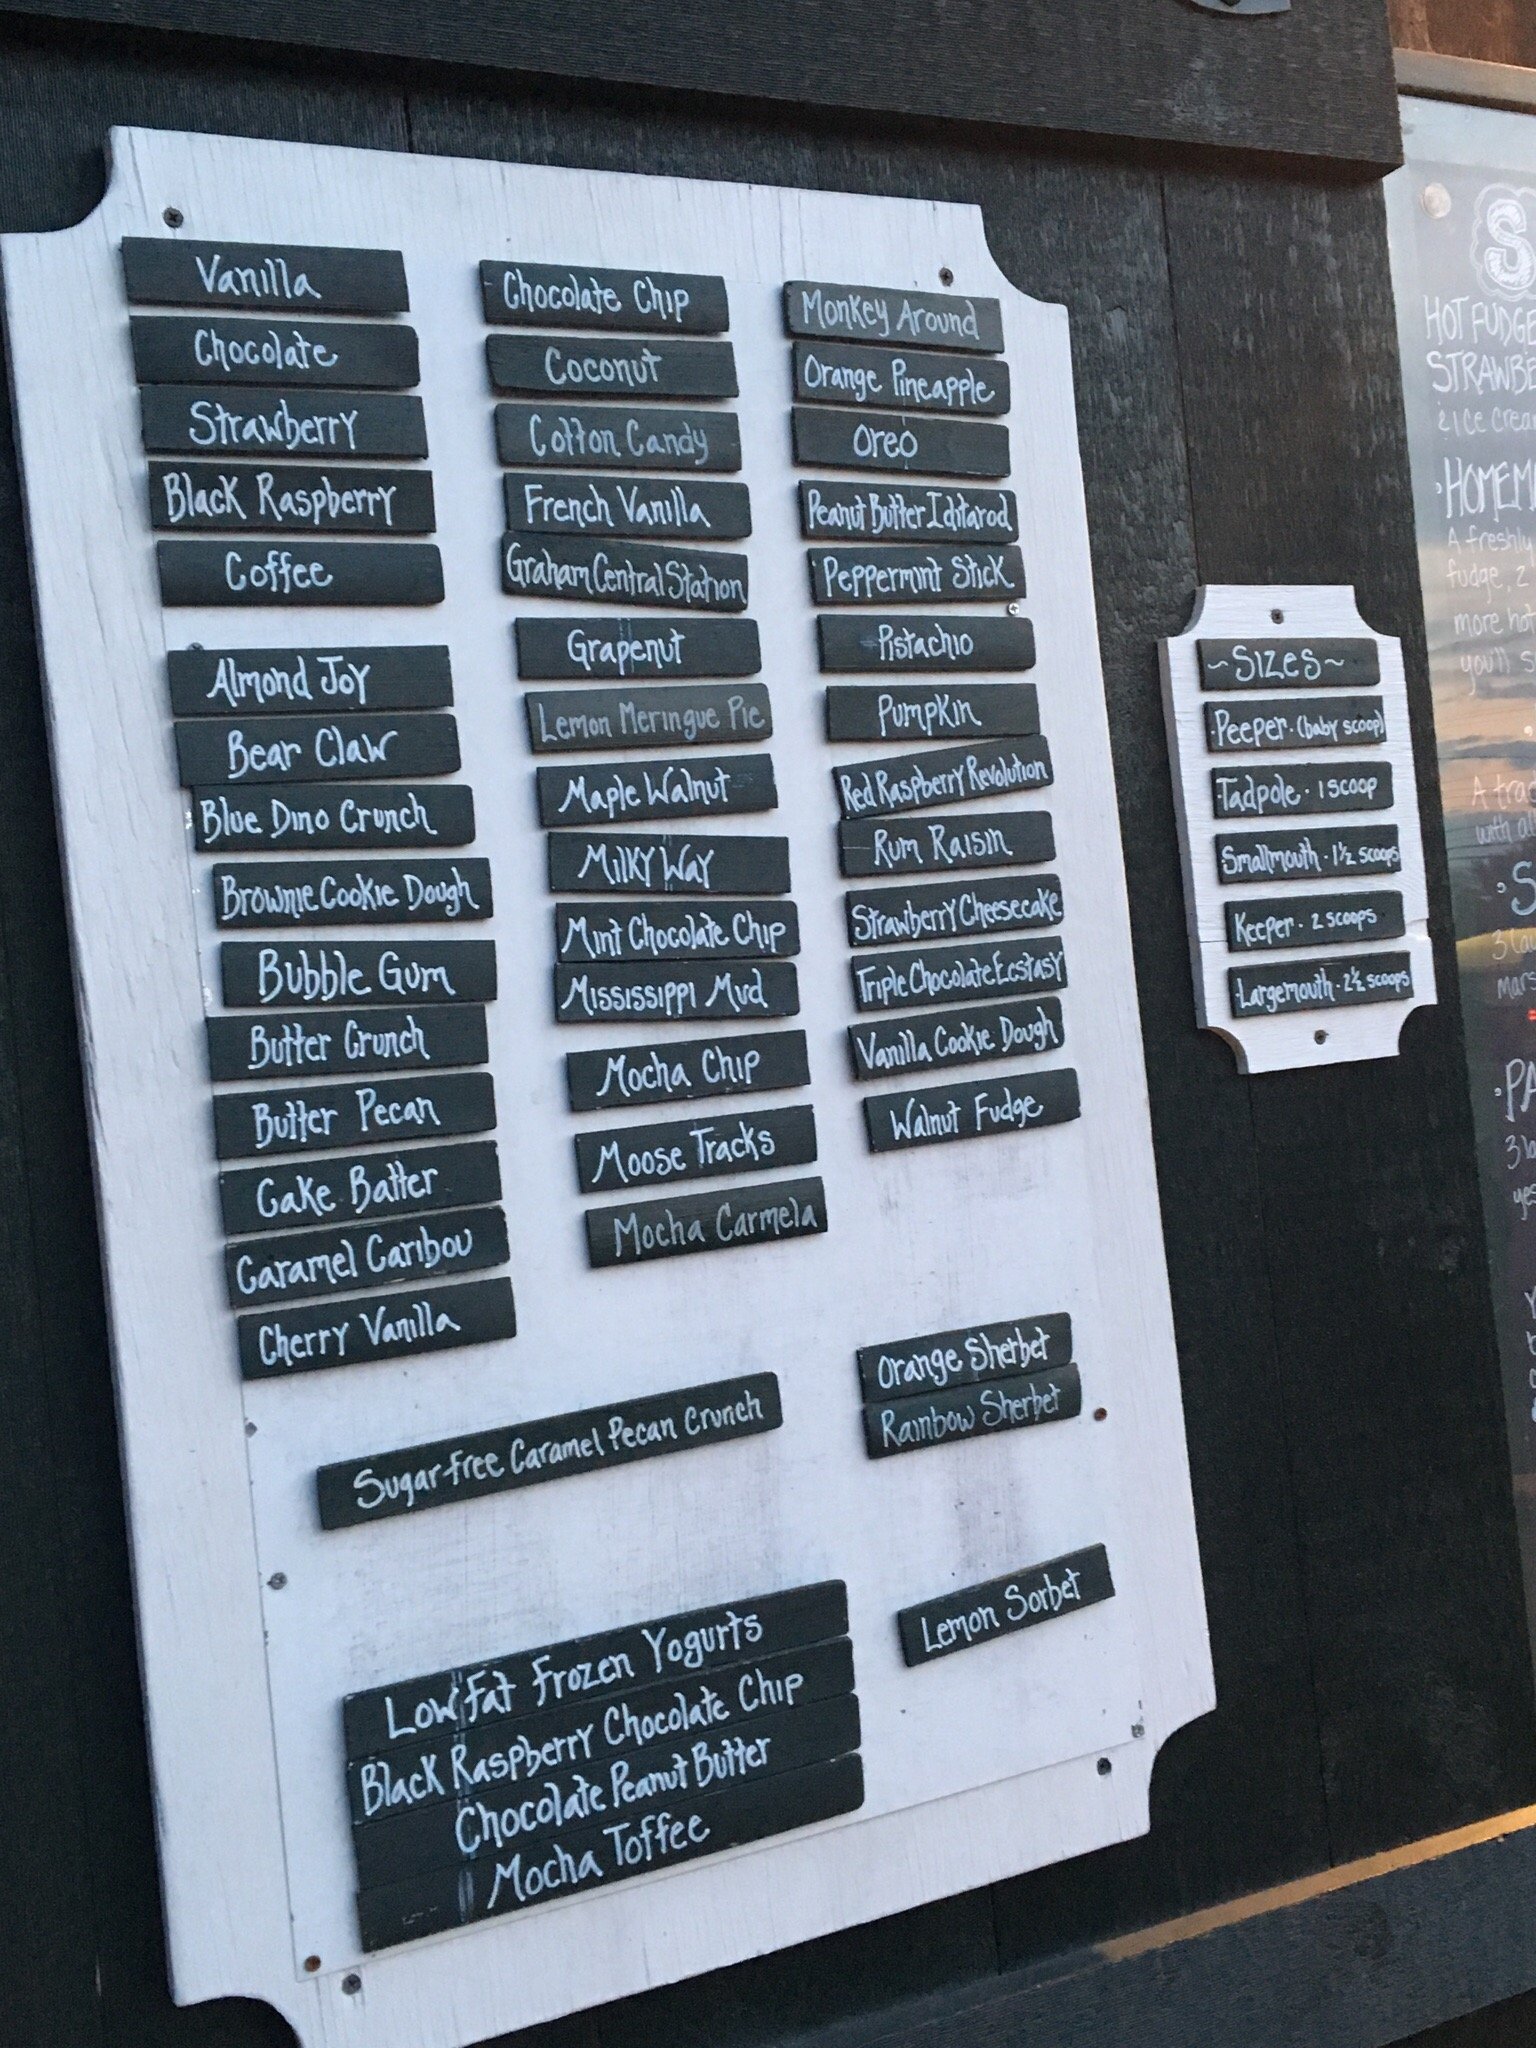 Vanilla
Chocolate
Strawberry
Black Raspberry
Coffee
Almond Joy
Bear Claw
Blue Dino Crunch
Brownie Cookie Dough
Bubble Gum
Butter Crunch
Butter Pecan
Cake Batter
Caramel Caribou
Cherry Vanilla
Chocolate Chip
Coconut
Cotton Candy
French Vanilla
Graham Central Station
Grapenut
Lemon Meringue Pie
Maple Walnut
Milky Way
Mint Chocolate Chip
Mississippi Mud
Mocha Chip
Moose Tracks
Mocha Carmela
Monkey Around
Orange Pineapple
Oreo
Peanut Butter Iditarod
Peppermint Stick
Pistachio
Pumpkin
Red Raspberry Revolution
Rum Raisin
Strawberry Cheesecake
Triple Chocolate Ecstasy
Vanilla Cookie Dough
Walnut Fudge
Sugar-free Caramel Pecan Crunch
Orange Sherbet
Rainbow Sherbet
Lemon Sorbet
Low fat Frozen Yogurts
Black Raspberry Chocolate Chip
Chocolate Peanut Butter
Mocha Toffee
~Sizes~
·Peeper·(baby scoop)
Tadpole·1 scoop
Smallmouth·1½ scoops
Keeper·2 scoops
·Largemouth·2½ scoops
HOT FUDGE
A freshly
fudge, 2
more hot
you'll
with